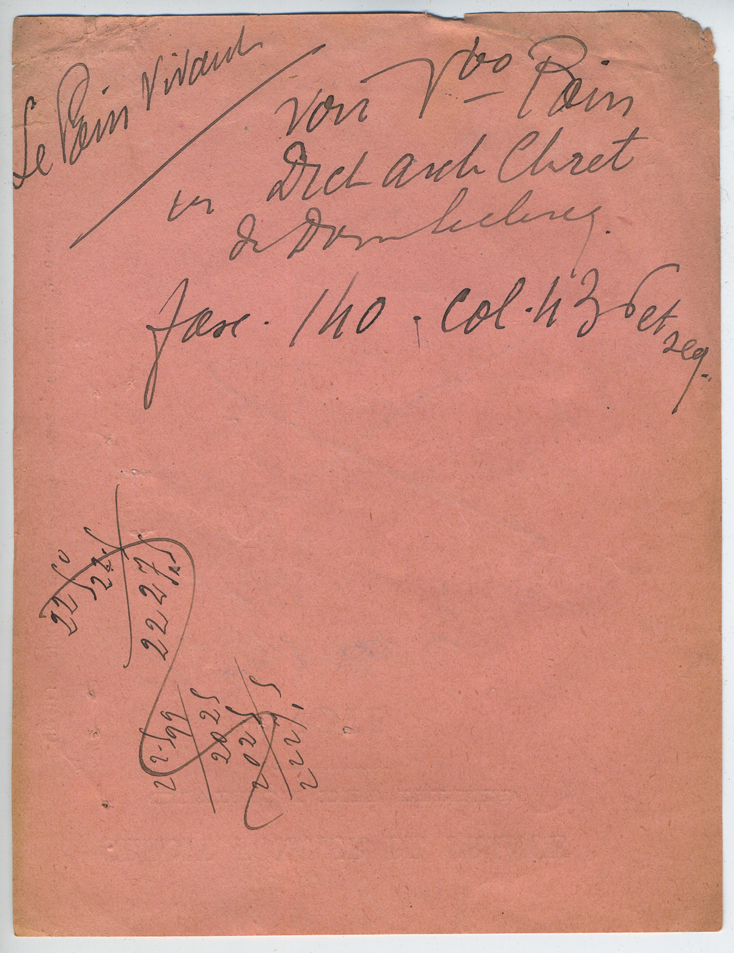 Le Pain Vivant
Voir Vbo Pain
in Dict Arch Chret
de Dom Leclercq.
fasc. 140. col. 436 et
seq.
2250
22.5
22275
2025
2025